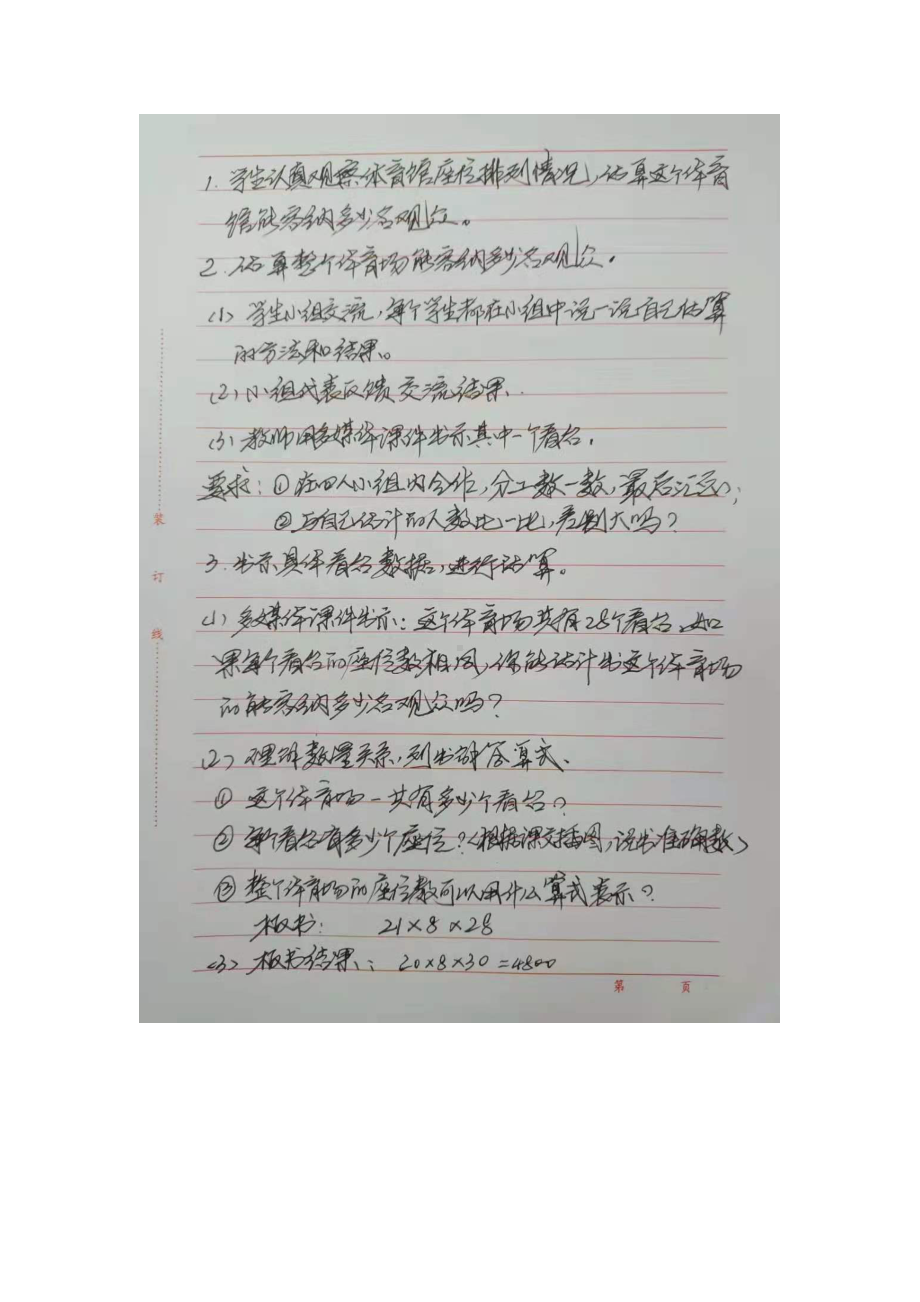 1. 学生认真观察体育馆座位排列情况,估算这个体育
馆能容纳多少名观众。
2. 估算整个体育场能容纳多少名观众。
(1) 学生小组交流,每个学生都在小组中说一说自己估算
的方法和结果。
(2) 小组代表反馈交流结果。
(3) 教师用多媒体课件出示其中一个看台。
要求:①在四人小组内合作,分工数一数,最后汇总;
②与自己估计的人数比一比,差别大吗?
3. 出示具体看台数据,进行估算。
(1) 多媒体课件出示:这个体育场共有28个看台,如
果每个看台的座位数相同,你能估计出这个体育场
的能容纳多少名观众吗?
(2) 理解数量关系,列出解答算式、
① 这个体育场一共有多少个看台?
② 每个看台有多少个座位?(根据课文插图,说出准确数)
③ 整个体育场的座位数可以用什么算式表示?
板书: 21×8×28
(3) 板书结果: 20×8×30=4800
第 页
装
订
线